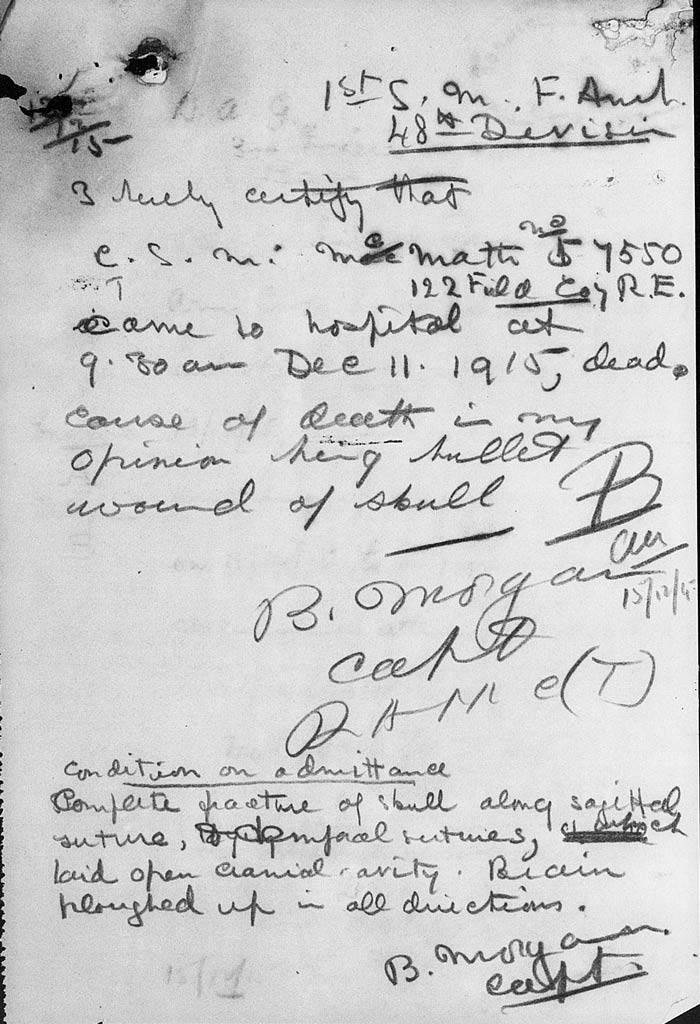 1st S. M. F. Amb.
48th Division
12/15
I hereby certify that
C. S. M: McMath no 57550
122 Field Coy R.E.
came to hospital at
9.30 am Dec 11. 1915, dead.
cause of death in my
opinion being bullet
wound of skull
B
B. Morgan
15/12/15
capt
RAMC (T)
Condition on admittance
Complete fracture of skull along sagittal
suture, temporal sutures, which
laid open cranial cavity. Brain
ploughed up in all directions.
B. Morgan.
capt.